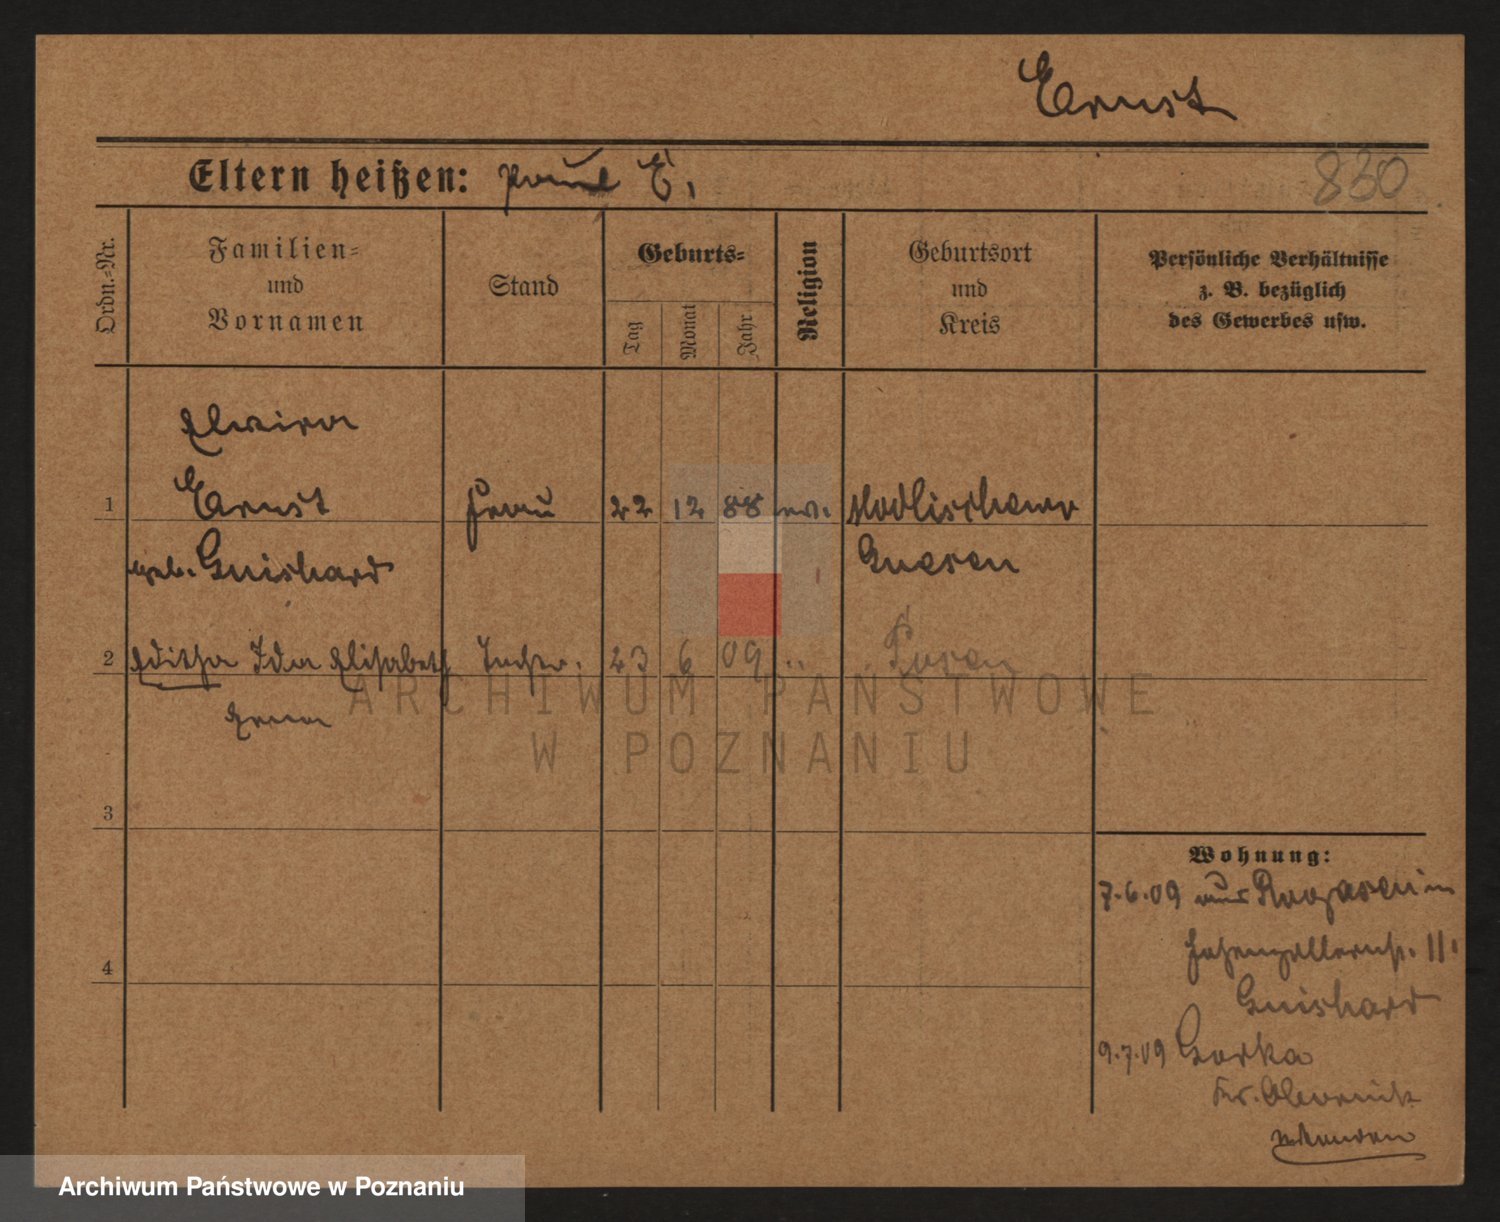 Ernst
Eltern heißen: Paul E.
830
Ordn.-Nr.
Familien-
und
Vornamen
Stand
Geburts-
Tag
Monat
Jahr
Religion
Geburtsort
und
Kreis
Persönliche Verhältnisse
z. B. bezüglich
des Gewerbes usw.
Elwira
1 Ernst Frau 22 12 88 ev.
geb. Guishard Gnesen
2 Editha Ida Elisabeth Tochter. 23 6 09 " Posen
Erna
ARCHIWUM PAŃSTWOWE
W POZNANIU
3
4
Wohnung:
7.6.09 aus Rogasen in
Hohenzollernstr. 11.
Guishard
9.7.09 Gorka
Kr. Obornik
Archiwum Państwowe w Poznaniu